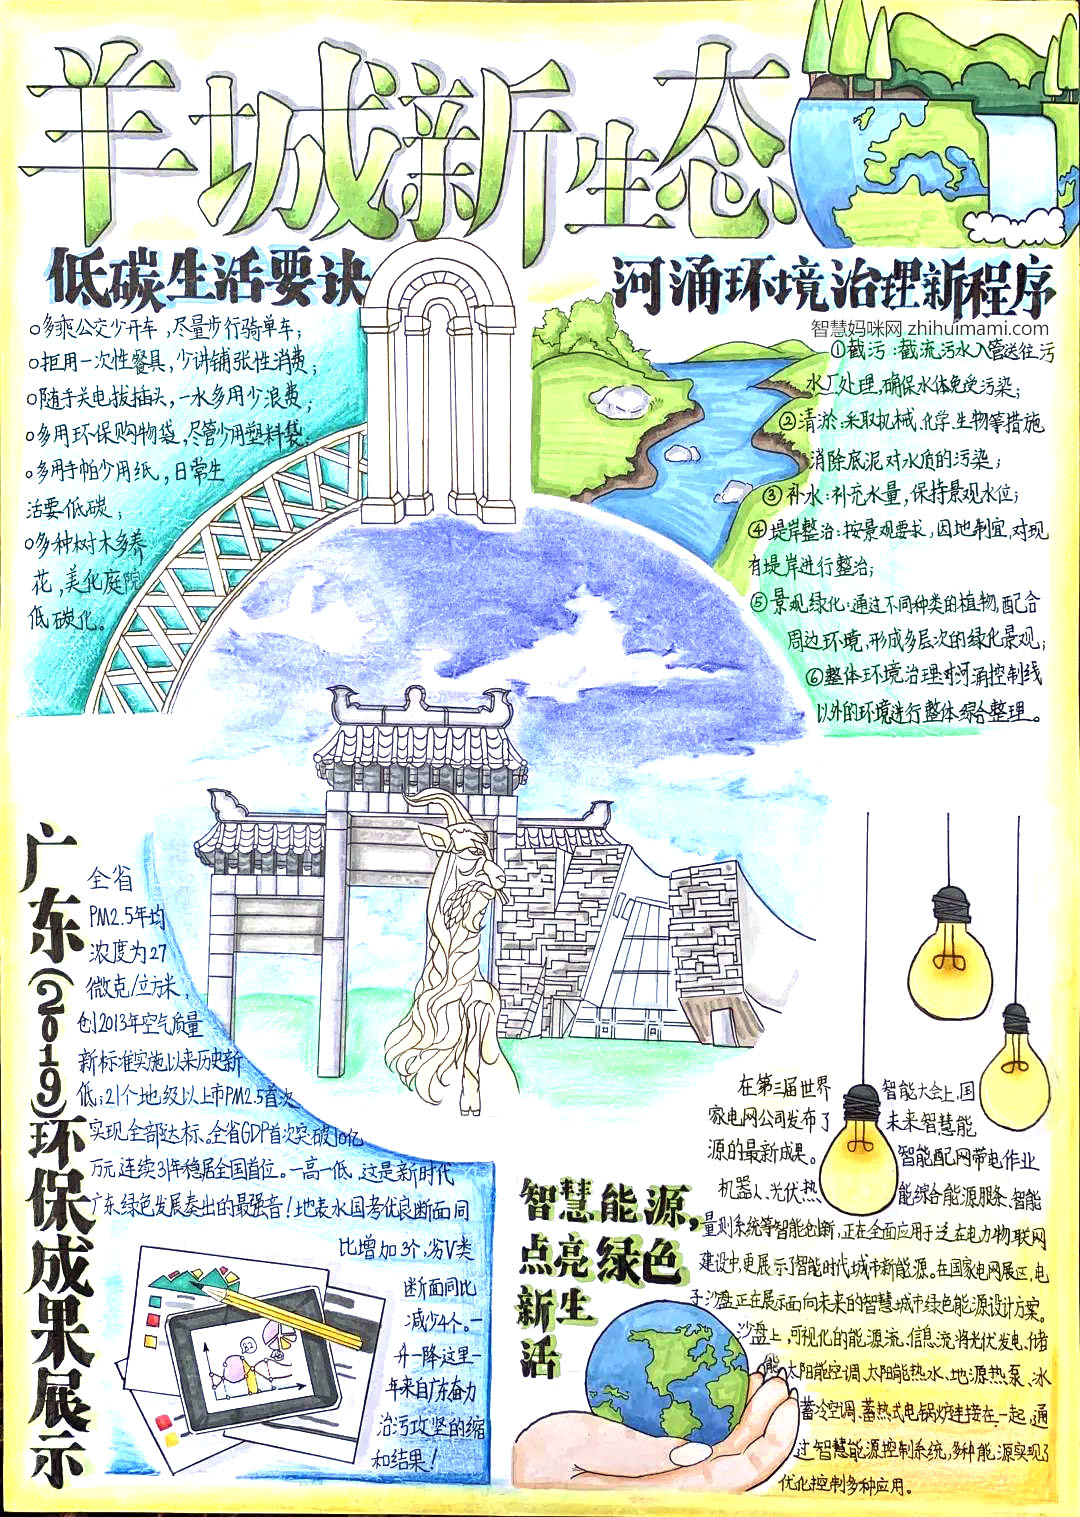 羊城新生态
低碳生活要诀
o多乘公交少开车,尽量步行骑单车;
o拒用一次性餐具,少讲铺张性消费;
o随手关电拔插头,一水多用少浪费;
o多用环保购物袋,尽管少用塑料袋;
o多用手帕少用纸,日常生
活要低碳;
o多种树木多养
花,美化庭院
低碳化。
河涌环境治理新程序
智慧妈咪网 zhihuimami.com
①截污:截流污水入管送住污
水厂处理,确保水体免受污染;
②清淤:采取机械、化学、生物等措施
消除底泥对水质的污染;
③补水:补充水量,保持景观水位;
④堤岸整治:按景观要求,因地制宜,对现
有堤岸进行整治;
⑤景观绿化:通过不同种类的植物,配合
周边环境,形成多层次的绿化景观;
⑥整体环境治理:对河涌控制线
以外的环境进行整体综合整理。
广东(2019)环保成果展示
全省
PM2.5年均
浓度为27
微克/立方米,
创2013年空气质量
新标准实施以来历史新
低;21个地级以上市PM2.5首次
实现全部达标。全省GDP首次突破10亿
万元,连续31年稳居全国首位。一高一低,这是新时代
广东绿色发展奏出的最强音!地表水国考优良断面同
比增加3个,劣V类
断面同比
减少4个。一
升一降这里一
年来自广东奋力
治污攻坚的缩
和结果!
智慧能源,
点亮绿色
新生
活
在第三届世界智能大会上,国
家电网公司发布了未来智慧能
源的最新成果。智能配网带电作业
机器人、光伏热能综合能源服务、智能
量测系统等智能创新,正在全面应用于泛在电力物联网
建设中,更展示了智能时代城市新能源。在国家电网展区,电
子沙盘正在展示面向未来的智慧城市绿色能源设计方案。
沙盘上,可视化的能源流、信息流,将光伏发电、储
能、太阳能空调、太阳能热水、地源热泵、冰
蓄冷空调、蓄热式电锅炉连接在一起,通
过智慧能源控制系统,多种能源实现了
优化控制多种应用。